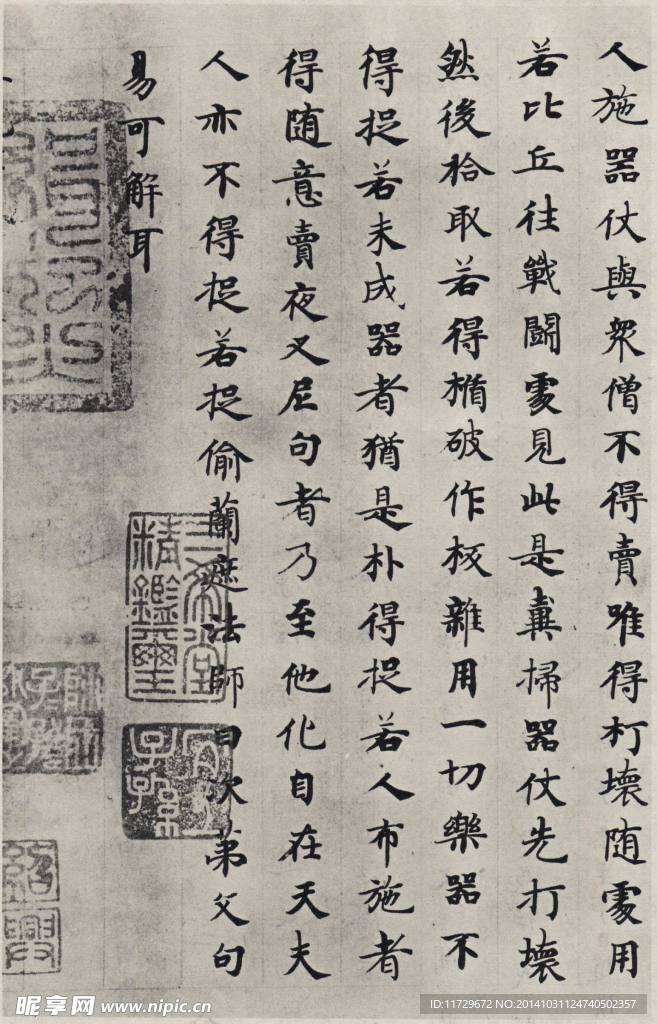 人施器仗與衆僧不得賣唯得打壞随處用
若比丘往戰鬪處見此是糞掃器仗先打壞
然後拾取若得楯破作板雜用一切樂器不
得捉若未成器者猶是朴得捉若人布施者
得随意賣夜叉尼句者乃至他化自在天夫
人亦不得捉若捉偷蘭遮法師曰次弟父句
易可解耳
三希堂
精鑑璽
宜子孫
紹興
昵享网 www.nipic.cn
ID:11729672 NO:20141031124740502357